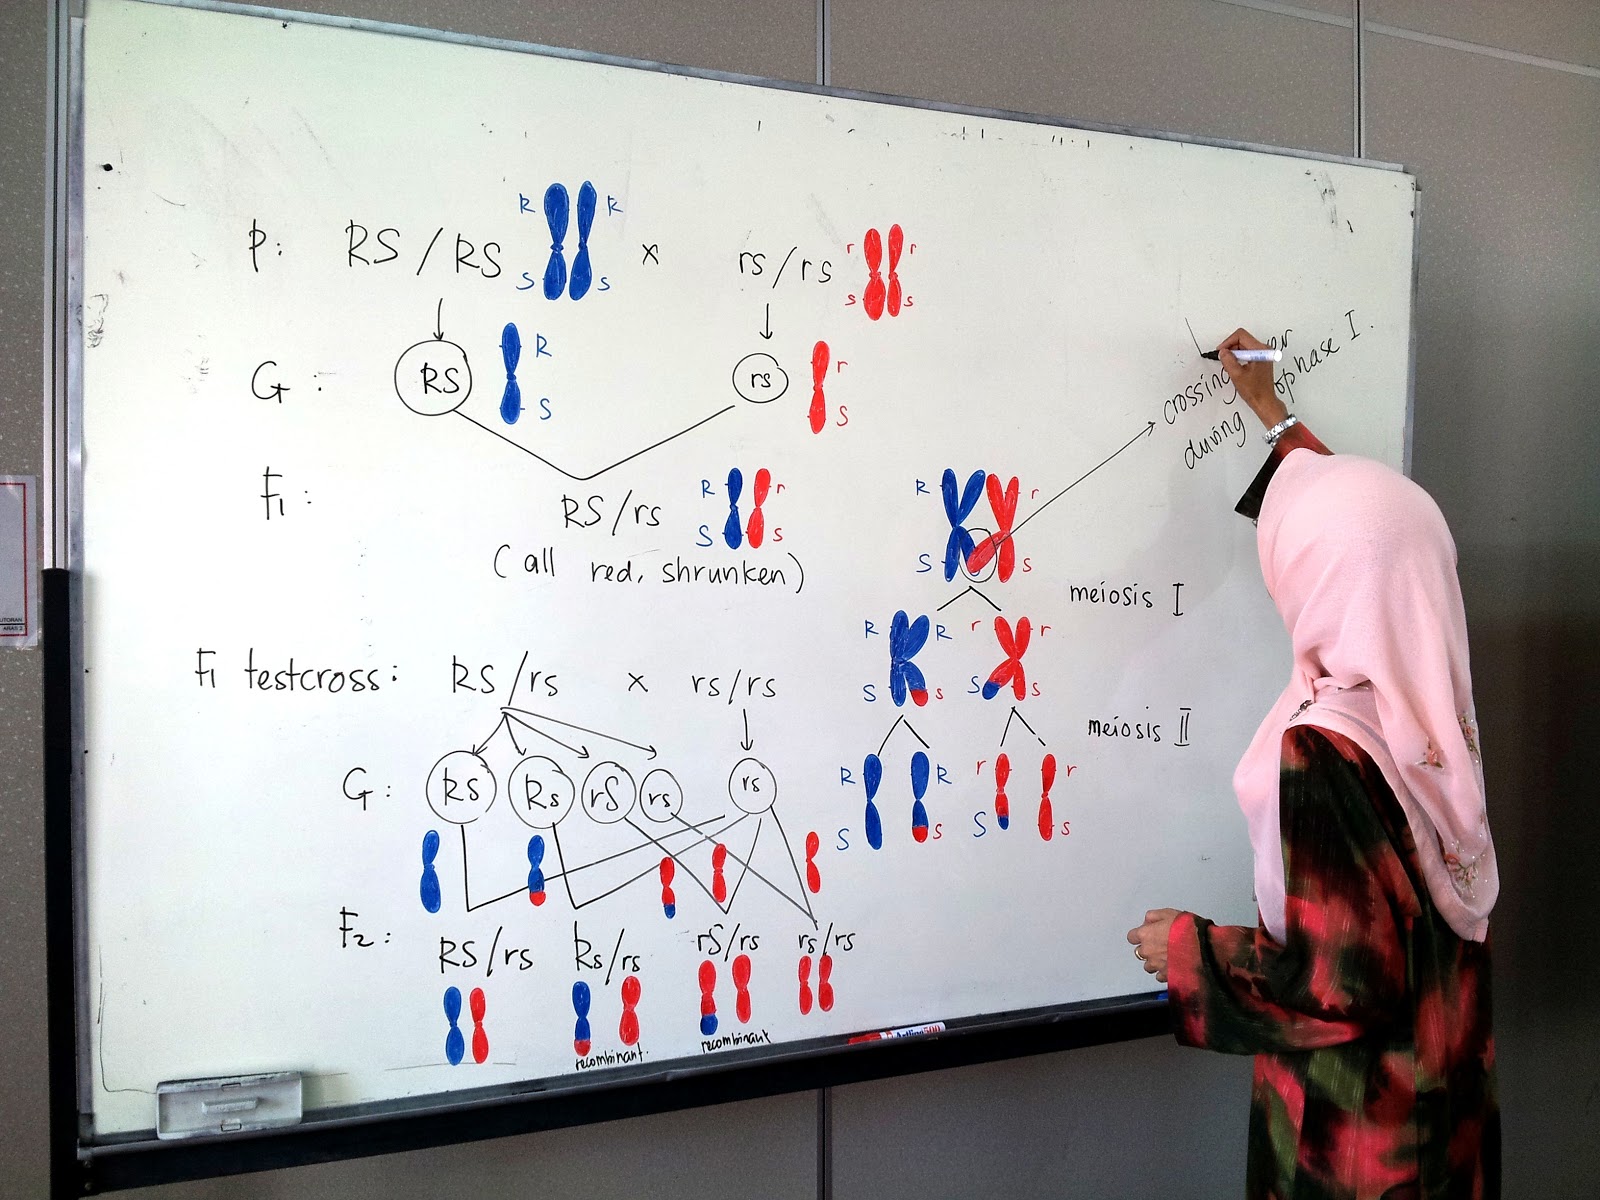 P: RS/RS R R S S x rs/rs r r s s
G: RS R S rs r s
F1: RS/rs R r S s
(all red, shrunken)
F1 testcross: RS/rs x rs/rs
G: RS Rs rS rs rs
F2: RS/rs Rs/rs rS/rs rs/rs
recombinant. recombinant
crossing
during ophase I.
R r
S s
meiosis I
R R r r
S s S s
meiosis II
R R r r
S s S s